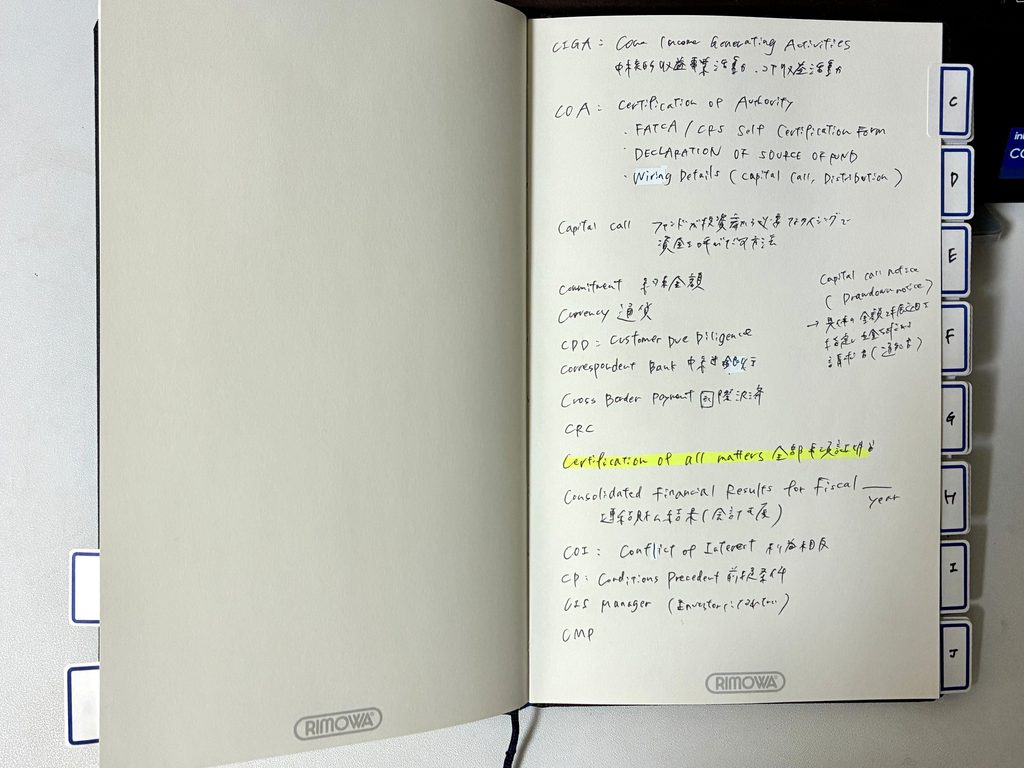 CIGA : Core Income Generating Activities
中核的収益事業活動、コア収益活動
COA : Certification of Authority
・FATCA / CRS Self Certification Form
・DECLARATION OF SOURCE OF FUND
・Wiring Details ( Capital Call, Distribution )
Capital call ファンドが投資家から必要なタイミングで
資金を呼びだす方法
Commitment 約束金額
Currency 通貨
CDD : Customer Due Diligence
Correspondent Bank 中継銀行
Cross Border Payment 国際決済
CRC
Certification of all matters 全部事項証明書
Consolidated Financial Results for Fiscal
year
連結財ム結果(会計年度)
COI : Conflict of Interest 利益相反
CP : Conditions Precedent 前提条件
CIS Manager (Investor
CMP
Capital call notice
( Drawdown notice )
→ 具体的金額
請求書(通知書)
C
D
E
F
G
H
I
J
RIMOWA
RIMOWA